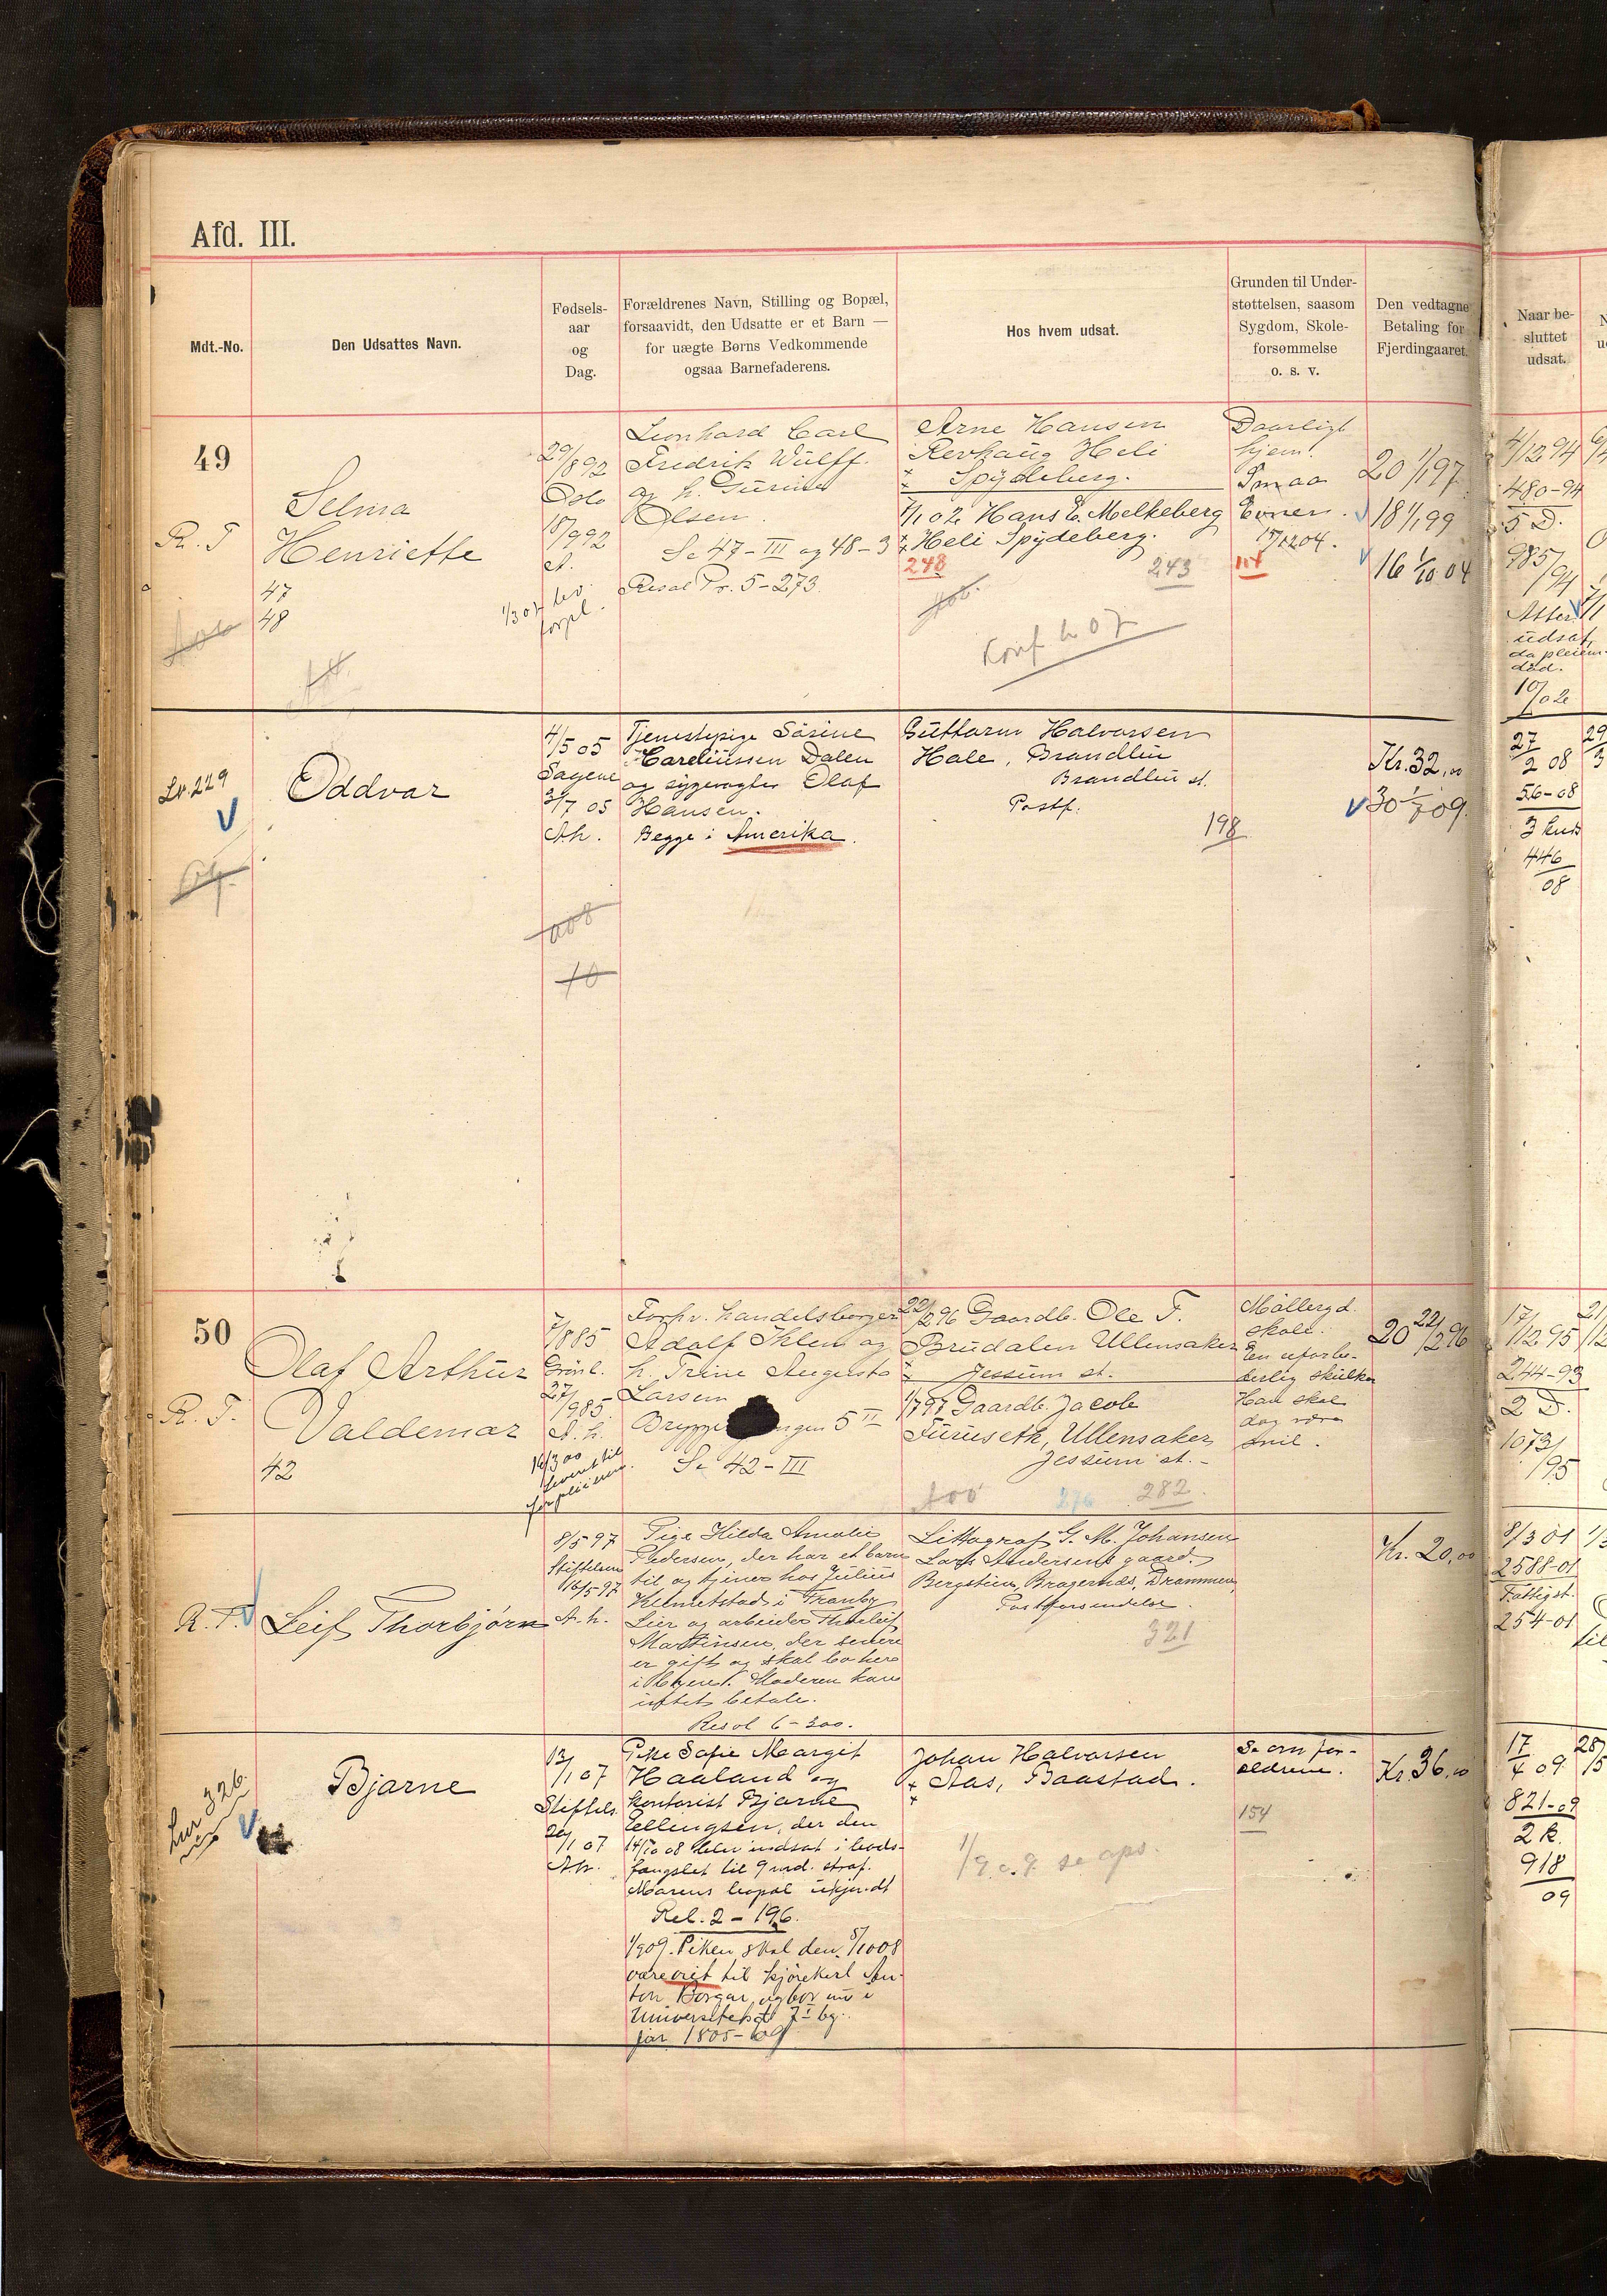 Afd. III.
Mdt.-No.
Den Udsattes Navn.
Fødsels-
aar
og
Dag.
Forældrenes Navn, Stilling og Bopæl,
forsaavidt, den Udsatte er et Barn —
for uægte Børns Vedkommende
ogsaa Barnefaderens.
Hos hvem udsat.
Grunden til Under-
støttelsen, saasom
Sygdom, Skole-
forsømmelse
o. s. v.
Den vedtagne
Betaling for
Fjerdingaaret.
Naar be-
sluttet
udsat.
49
R. T
Selma
Henriette
47
48
29/8 92
Oslo
18/9 92
A.
1/3 07 bev.
forpl.
Leonhard Carl
Fredrik Wulff.
og h.
Olsen.
Se 47-III og 48-3
Resol Pr. 5-273.
Arne Hansen
Revhaug Heli
Spydeberg.
1/1 02 Hans E. Melkeberg
Heli Spydeberg.
248
243
Konf h 07
Daarligt
hjem.
Smaa
Evner.
15/12 04.
114
20 1/1 97
18 1/1 99
16 1/10 04
4/12 94
480-94
5 D.
985/94
Atter
udsat,
da pleiem.
død.
10/02
Lr. 229
Oddvar
4/5 05
Sagene
3/7 05
A.h.
Tjenestepige Sörine
Careliussen Dalen
og sygevogter Olaf
Hansen.
Begge i Amerika.
Guttorm Halvorsen
Hale, Brandbu
Brandbu st.
Postf.
198
Kr. 32,00
30 1/7 09.
27/2 08
56-08
446/08
08
10
50
R. T.
Olaf Arthur
Valdemar
42
7/8 85
Grönl.
27/9 85
A. h.
16/3 00
Forhv. handelsborger
Adolf Iklem og
h. Trine Augusta
Larsen
5 II
Se 42-III
22/2 96 Gaardb. Ole T.
Brudalen Ullensaker
Jessum st.
1/7 97 Gaardb. Jacob
Furuseth, Ullensaker
Jessum st.
276
282
Möllergd.
skole.
En uforbe-
derlig skulker
Han skal
dog være
snil.
20 22/2 96
17/12 95
244-93
2 D.
1073/95
R. T.
Leif Thorbjørn
8/5 97
Stiftelsen
16/5 97
A. h.
Pige Hilda Amalie
Pedersen, der har et barn
til og tjener hos Julius
Kelmetstad i Tranby
Lier og arbeider Thorleif
Martinsen, der senere
er gift og skal bo here
i byen. Moderen kan
intet betale.
Resol 6-300.
Littograf G. M. Johansen
Lars Andersens gaard.
Bergstien, Bragernes, Drammen
Postforsendelse.
321
Kr. 20,00
8/3 01
2588-01
Fattigst.
254-01
326.
Bjarne
13/1 07
Stiftels.
29/1 07
A.h.
Pike Sofie Margit
Haaland og
kontorist Bjarne
Ellingsen, der den
14/10 08 blev indsat i bods-
fængslet til 9 md. straf.
Morens bopæl ukjendt
Rel. 2-196.
1/9 09. Piken skal den 5/10 08
være viet til kjörekarl An-
ton Borgar, og bor nu i
Universitetsgt 7 I bg.
jör 1805-09
Johan Halvorsen
Aas, Baastad.
1/9 09 se
Se om for-
ældrene.
154
Kr. 36,00
17/4 09
821-09
2 k.
918/09